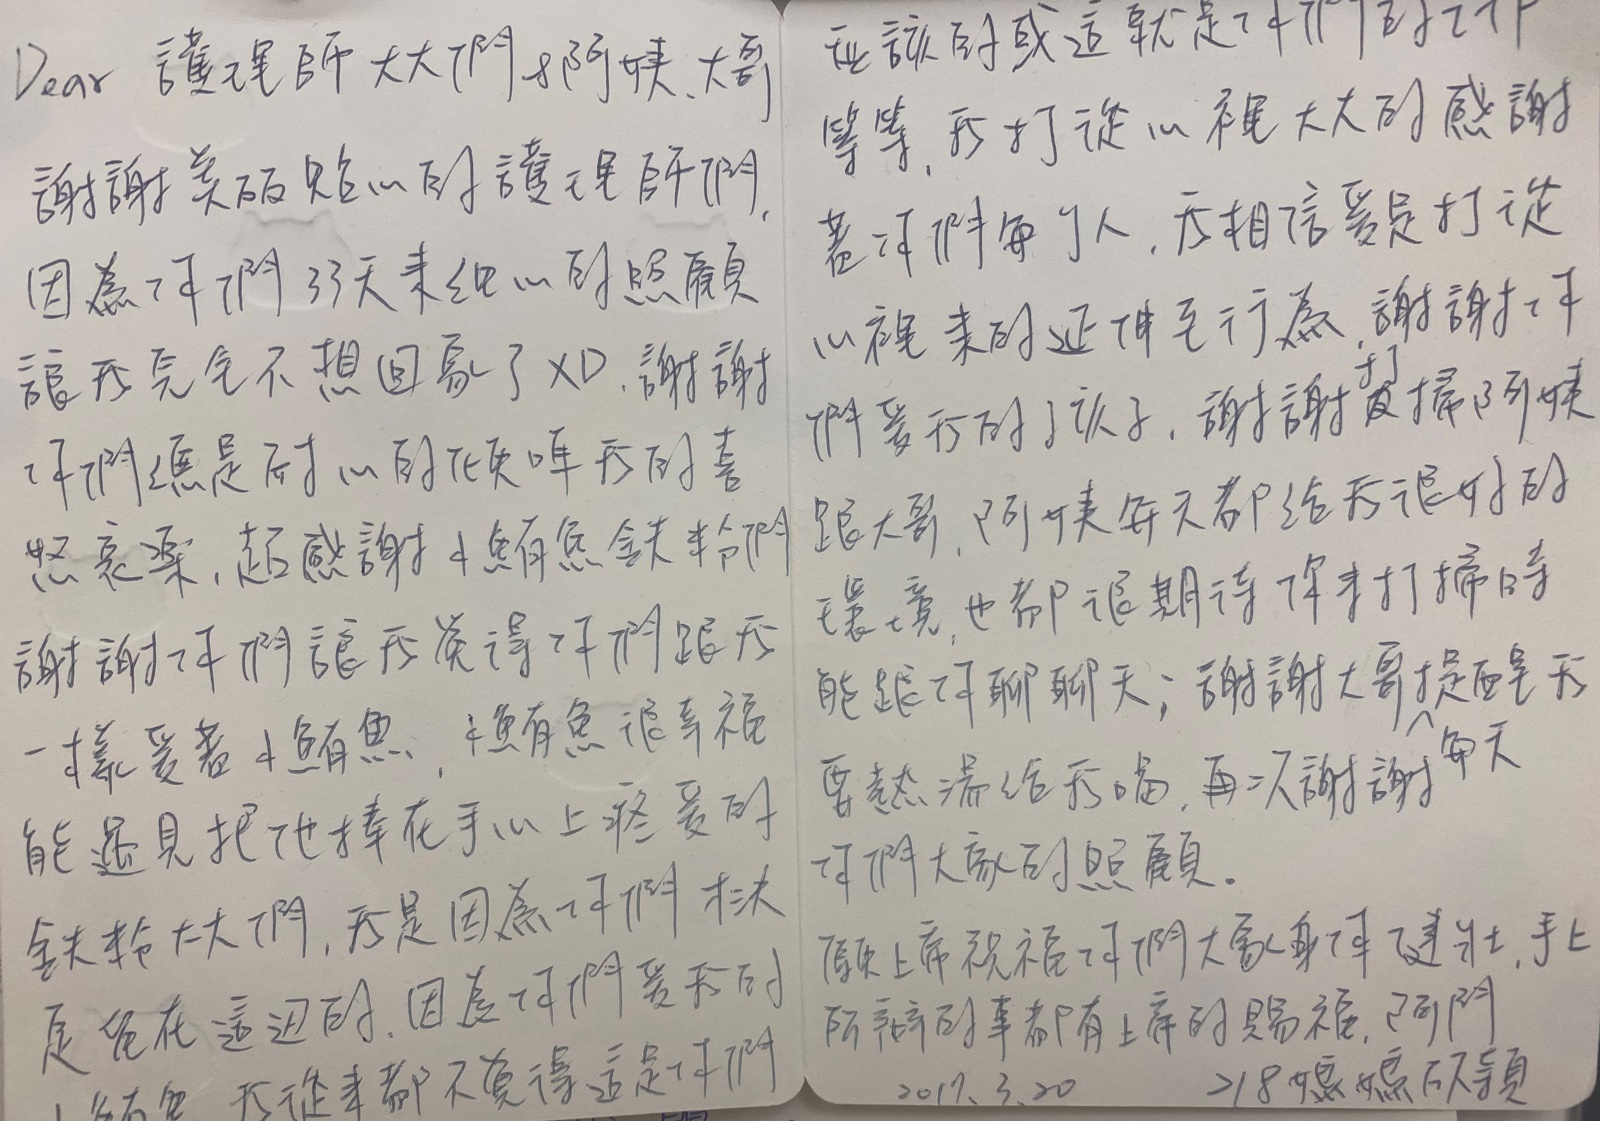 Dear 護理師大大們&阿姨、大哥
謝謝美丽貼心的護理師們,
因為你們33天來細心的照顧
讓我完全不想回家了XD,謝謝
你們總是耐心的傾唯我的喜
怒哀樂,超感謝小鮪魚鉄粉們
謝謝你們讓我覚得你們跟我
一樣爱著小鮪魚,小鮪魚很幸福
能遇見把他捧在手心上疼爱的
鉄粉大大們,我是因為你們才決
定住在這辺的,因為你們爱我的
小鮪魚,我從來都不覚得這是你們
应該的或這就是你們的工作
等等,我打從心裡大大的感謝
著你們每个人,我相信爱是打從
心裡來的延伸至行為,謝謝你
們爱我的孩子,謝謝打掃阿姨
跟大哥,阿姨每天都给我很好的
環境,也都很期待你來打掃時
能跟你聊聊天;謝謝大哥每天提醒我
要熱湯给我喝,再次謝謝
你們大家的照顧。
願上帝祝福你們大家身体健壮,手上
所辦的事都有上帝的賜福,阿門
2017.3.20 218媽媽